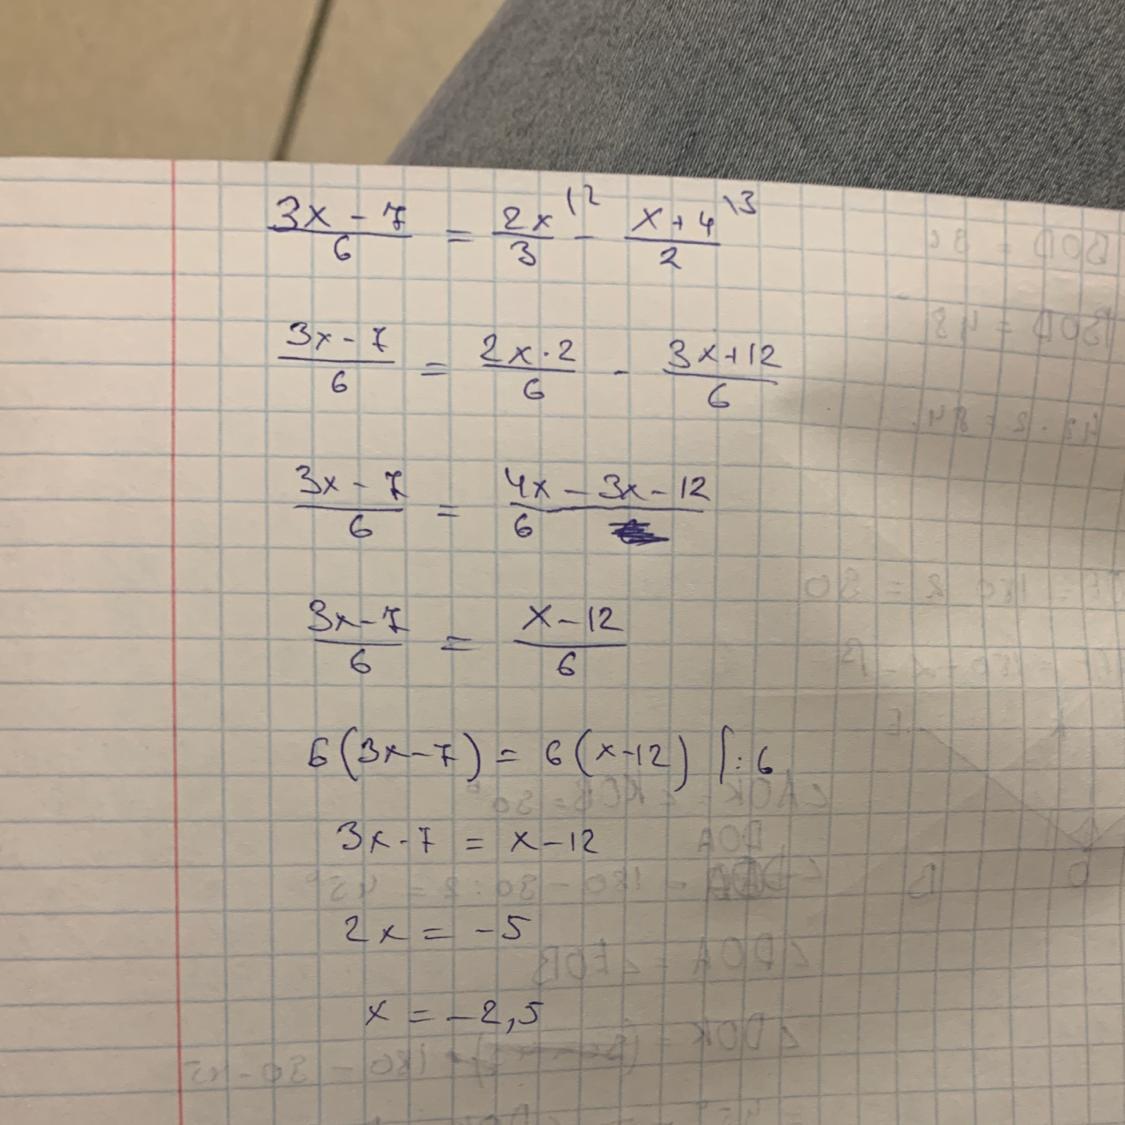 (3x - 7)/6 = 2x/3 \2 - (x+4)/2 \3
(3x - 7)/6 = (2x·2)/6 - (3x+12)/6
(3x - 7)/6 = (4x - 3x - 12)/6
(3x-7)/6 = (x-12)/6
6(3x-7) = 6(x-12) |:6
3x-7 = x-12
2x = -5
x = -2,5